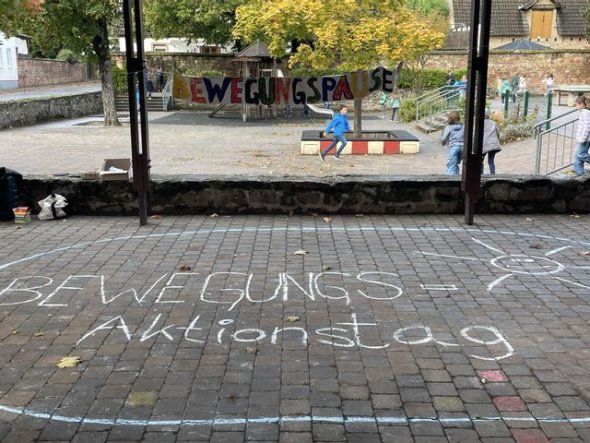 BEWEGUNGSPAUSE
BEWEGUNGS-
Aktionstag